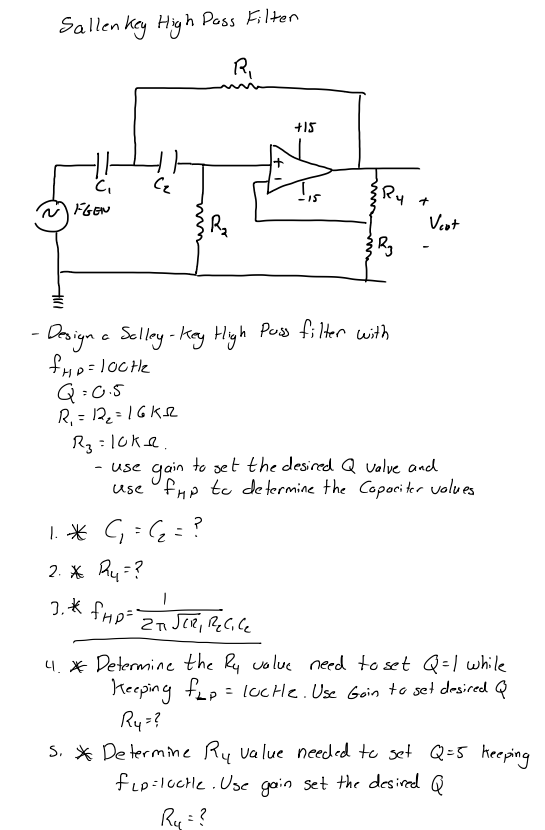 Sallen Key High Pass Filter
R₁
+15
+
-
-15
C₁
C₂
FGEN
R₂
R₄
+
Vout
-
R₃
- Design a Salley-Key High Pass filter with
fHP = 100Hz
Q = 0.5
R₁ = R₂ = 16KΩ
R₃ = 10KΩ.
- use gain to set the desired Q value and
use fHP to determine the Capacitor values
1. * C₁ = C₂ = ?
2. * R₄ = ?
3. * fHP = 1 / 2π √(R₁ R₂ C₁ C₂
4. * Determine the R₄ value need to set Q=1 while
keeping fLP = 100Hz. Use Gain to set desired Q
R₄ = ?
5. * Determine R₄ value needed to set Q=5 keeping
fLP = 100Hz. Use gain set the desired Q
R₄ = ?